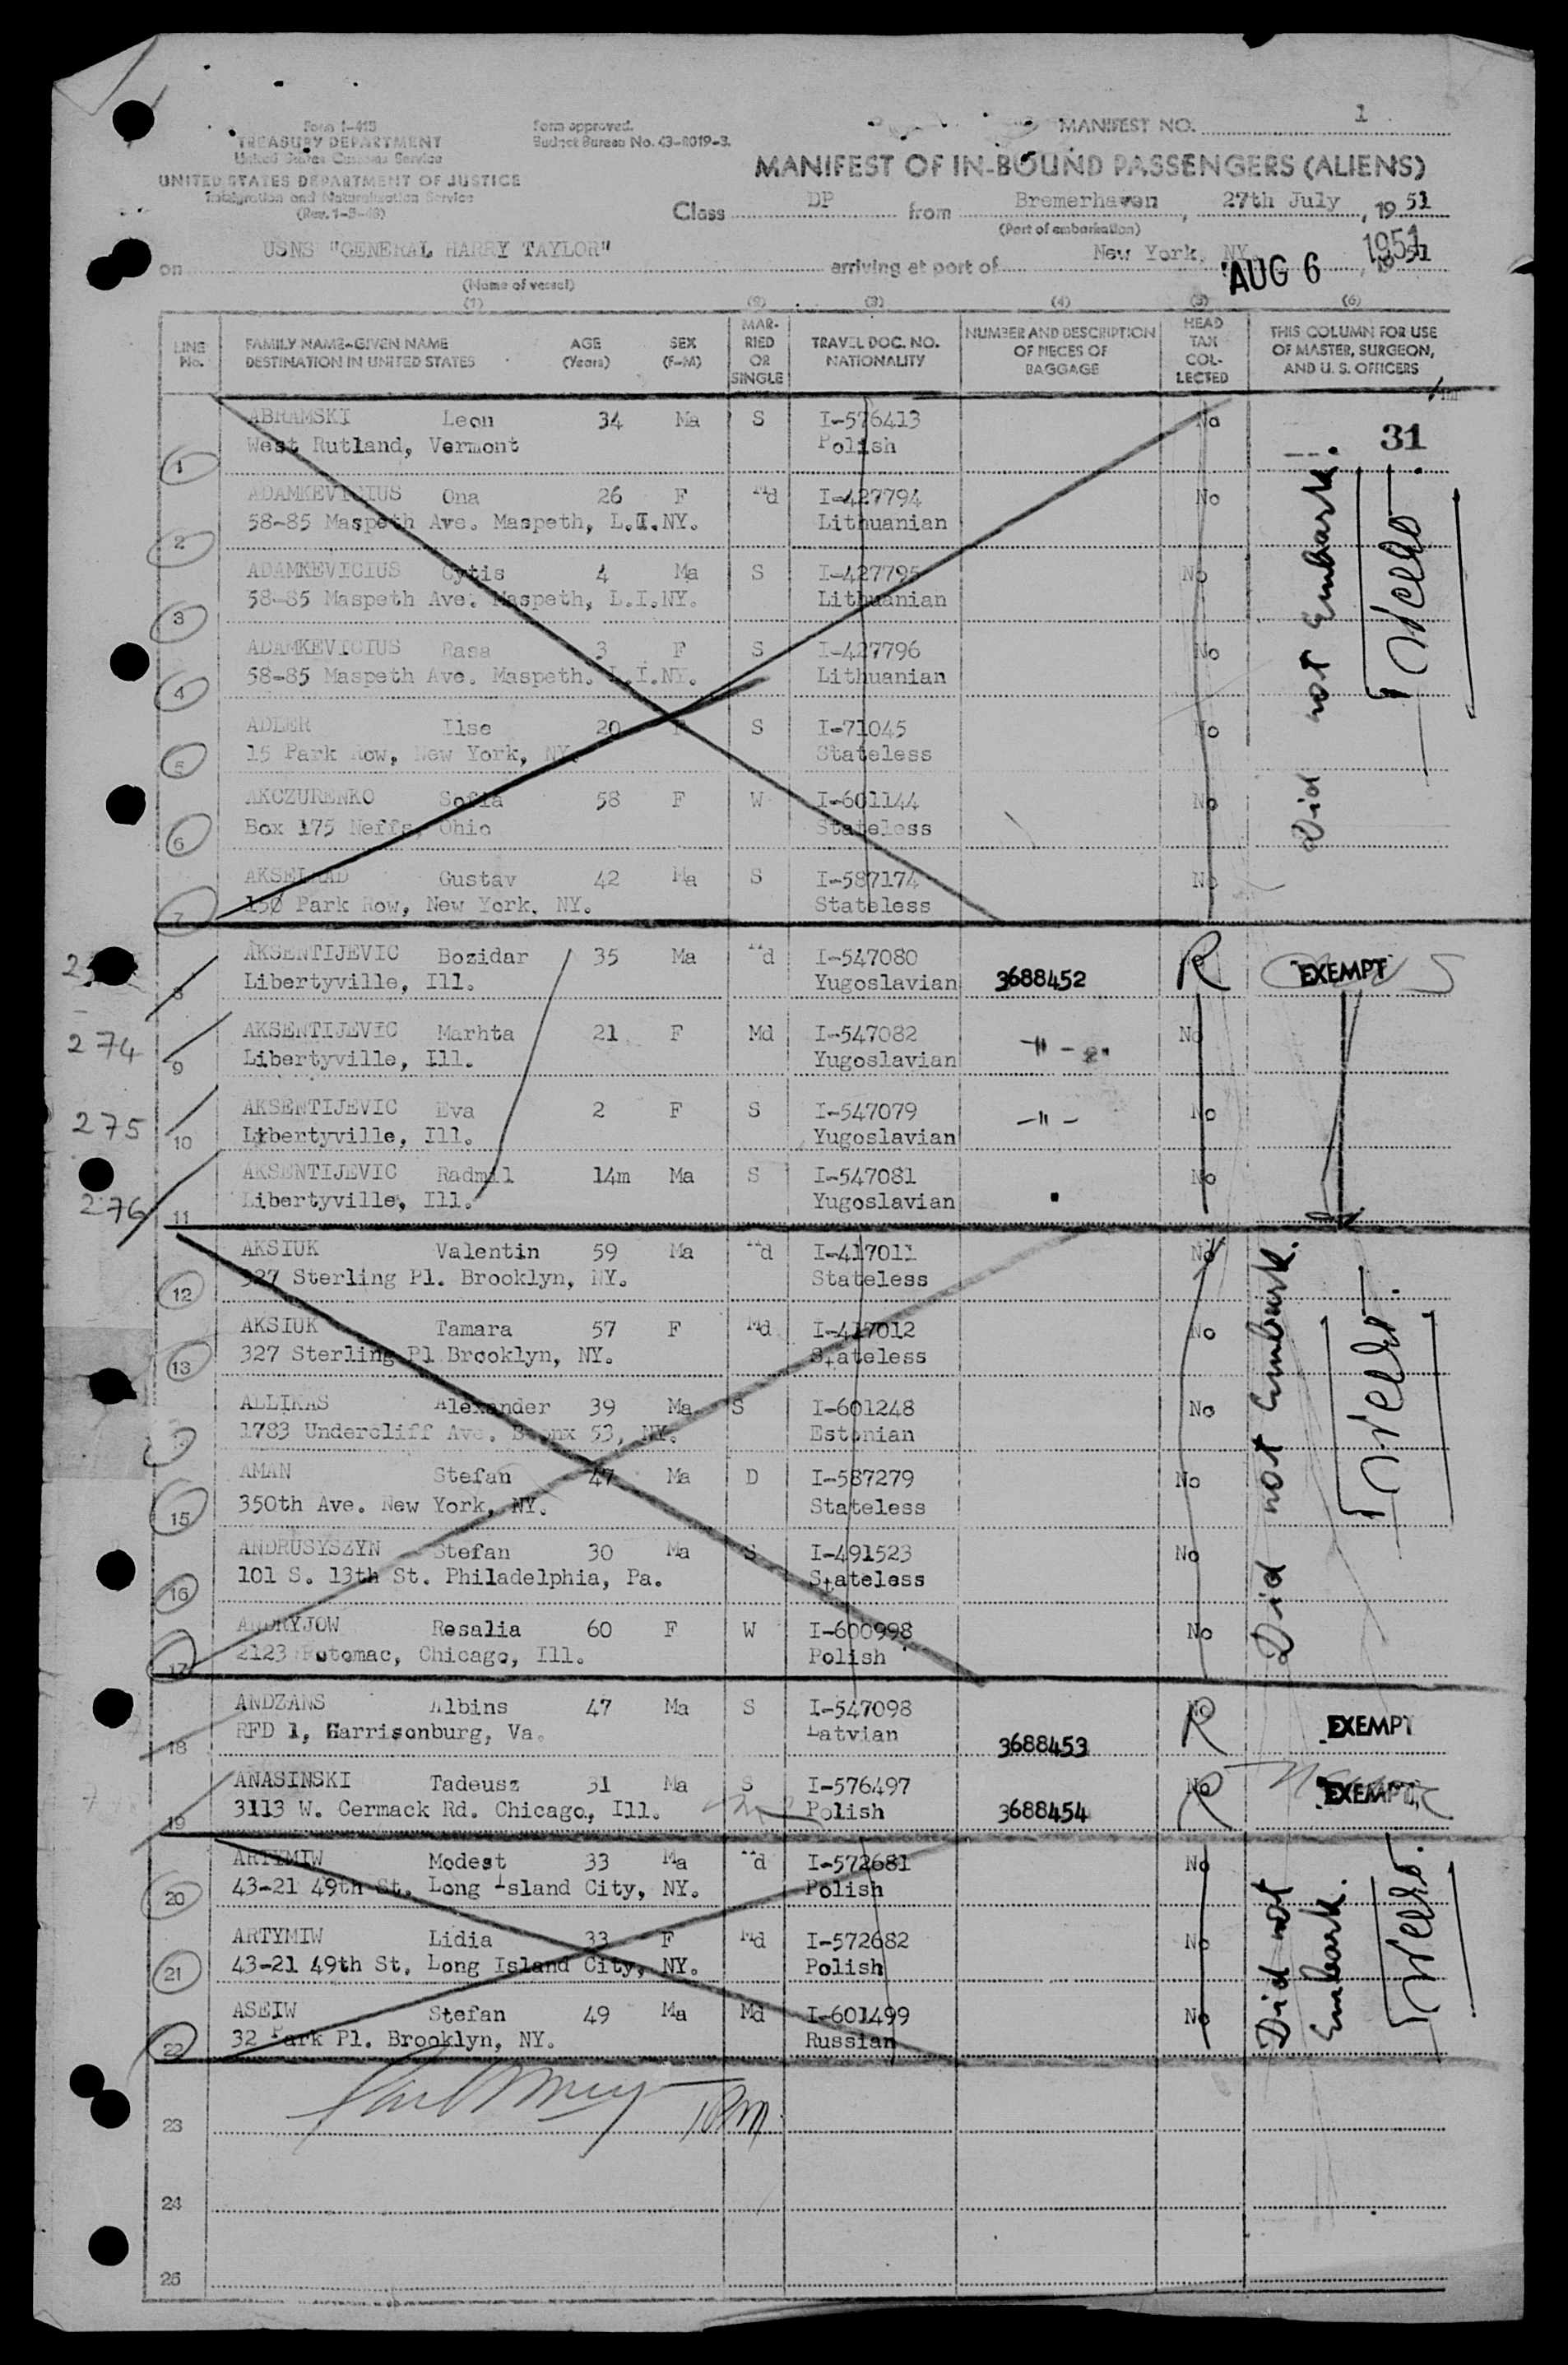 Form I-415
TREASURY DEPARTMENT
United States Customs Service
UNITED STATES DEPARTMENT OF JUSTICE
Immigration and Naturalization Service
Form approved.
Budget Bureau No. 43-R019-3.
MANIFEST NO. 1
MANIFEST OF IN-BOUND PASSENGERS (ALIENS)
Class DP from Bremerhaven, 27th July, 19 51
(Port of embarkation)
on USNS "GENERAL HARRY TAYLOR" arriving at port of New York, NY. AUG 6 1951
(Name of vessel)
(1) (2) (3) (4) (5) (6)
LINE No. FAMILY NAME-GIVEN NAME DESTINATION IN UNITED STATES AGE (Years) SEX (F-M) MARRIED OR SINGLE TRAVEL DOC. NO. NATIONALITY NUMBER AND DESCRIPTION OF PIECES OF BAGGAGE HEAD TAX COLLECTED THIS COLUMN FOR USE OF MASTER, SURGEON, AND U. S. OFFICERS
31
1 ABRAMSKI Leon 34 Ma S I-576413 No
West Rutland, Vermont Polish
2 ADAMKEVICIUS Ona 26 F Md I-427794 No
58-85 Maspeth Ave. Maspeth, L.I.NY. Lithuanian
3 ADAMKEVICIUS Cytis 4 Ma S I-427795 No
58-85 Maspeth Ave. Maspeth, L.I.NY. Lithuanian
4 ADAMKEVICIUS Rasa 3 F S I-427796 No
58-85 Maspeth Ave. Maspeth. L.I.NY. Lithuanian
5 ADLER Ilse 20 F S I-71045 No
15 Park Row, New York, NY Stateless
6 AKCZURENKO Sofia 58 F W I-601144 No
Box 175 Neffs, Ohio Stateless
7 AKSELRAD Gustav 42 Ma S I-587174 No
150 Park Row, New York, NY. Stateless
Did not Embark.
8 AKSENTIJEVIC Bozidar 35 Ma Md I-547080 R EXEMPT
Libertyville, Ill. Yugoslavian 3688452
274 9 AKSENTIJEVIC Marhta 21 F Md I-547082 -"- No
Libertyville, Ill. Yugoslavian
275 10 AKSENTIJEVIC Eva 2 F S I-547079 -"- No
Libertyville, Ill. Yugoslavian
276 11 AKSENTIJEVIC Radmil 14m Ma S I-547081 No
Libertyville, Ill. Yugoslavian
12 AKSIUK Valentin 59 Ma Md I-417011 No
327 Sterling Pl. Brooklyn, NY. Stateless
13 AKSIUK Tamara 57 F Md I-417012 No
327 Sterling Pl Brooklyn, NY. Stateless
ALLIKAS Alexander 39 Ma S I-601248 No
1783 Undercliff Ave. Bronx 53, NY. Estonian
15 AMAN Stefan 47 Ma D I-587279 No
350th Ave. New York, NY. Stateless
16 ANDRUSYSZYN Stefan 30 Ma S I-491523 No
101 S. 13th St. Philadelphia, Pa. Stateless
17 ANDRYJOW Resalia 60 F W I-600998 No
2123 Potomac, Chicago, Ill. Polish
Did not Embark.
18 ANDZANS Albins 47 Ma S I-547098 No R EXEMPT
RFD 1, Harrisonburg, Va. Latvian 3688453
19 ANASINSKI Tadeusz 31 Ma S I-576497 No R EXEMPT
3113 W. Cermack Rd. Chicago, Ill. Polish 3688454
20 ARTYMIW Modest 33 Ma Md I-572681 No
43-21 49th St. Long Island City, NY. Polish
21 ARTYMIW Lidia 33 F Md I-572682 No
43-21 49th St. Long Island City, NY. Polish
22 ASEIW Stefan 49 Ma Md I-601499 No
32 Park Pl. Brooklyn, NY. Russian
Did not
Embark.
23
24
25